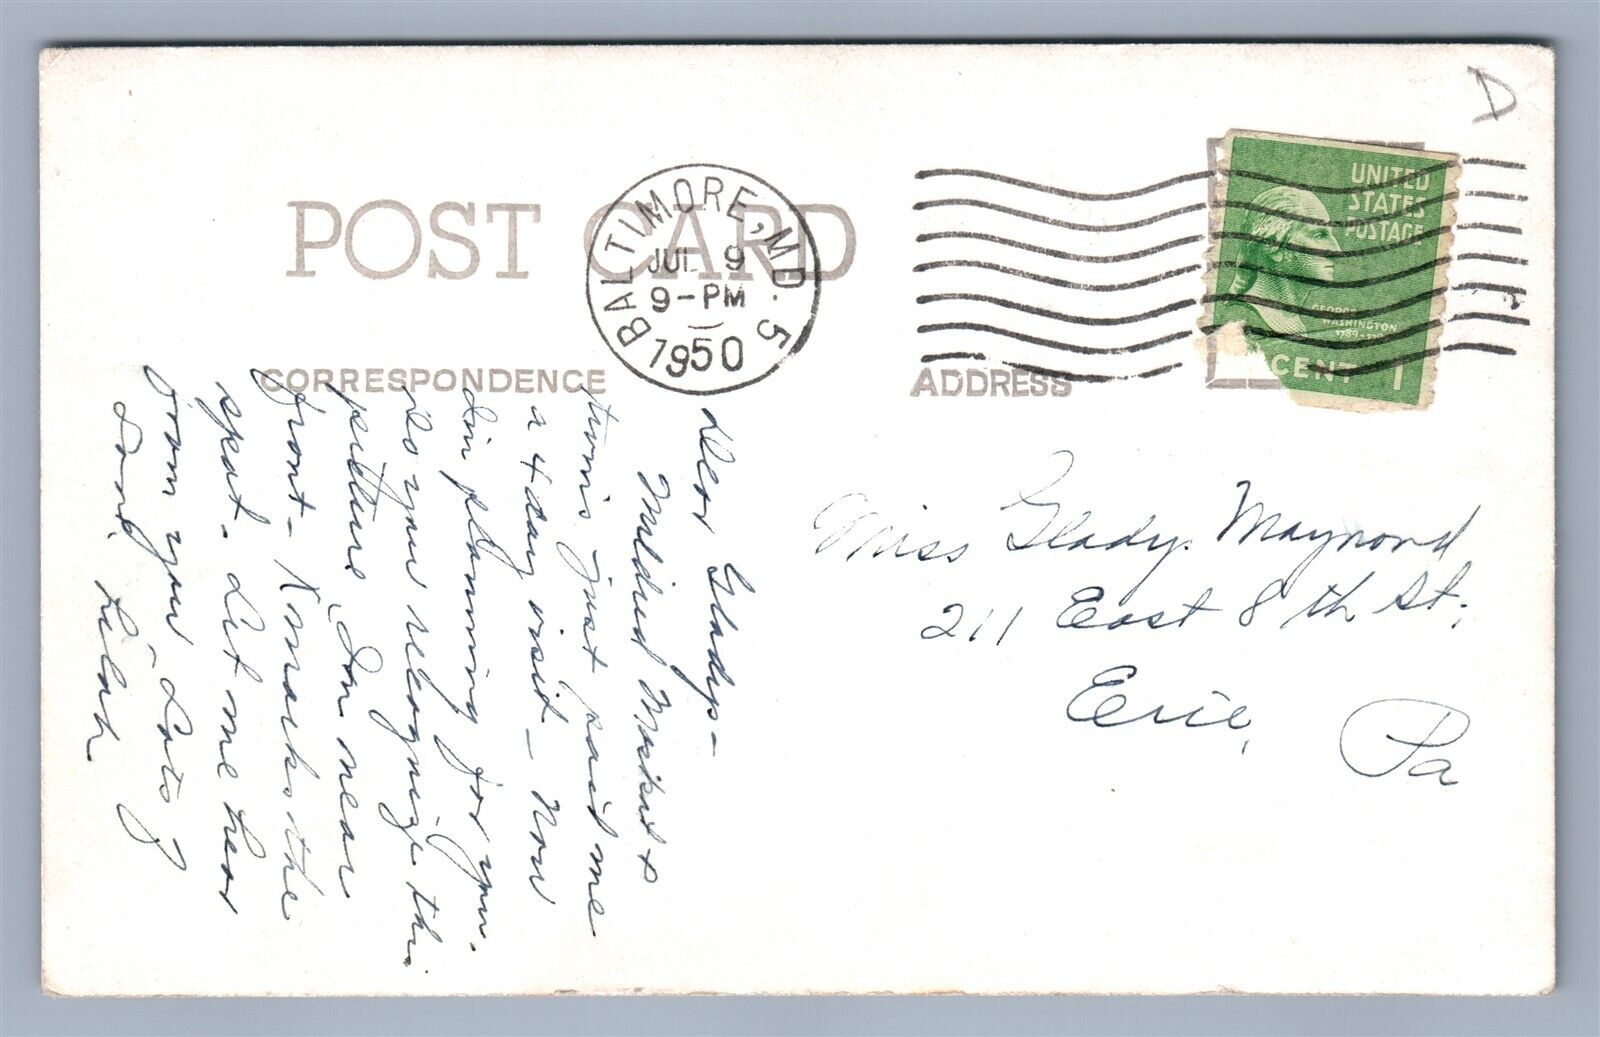 POST CARD
BALTIMORE, MD. 5
JUL 9
9-PM
1950
UNITED
STATES
POSTAGE
GEORGE
WASHINGTON
1789-
CENT 1
CORRESPONDENCE
ADDRESS
D
Dear Gladys -
Mildred &
twins just paid me
a 4 day visit - Now
I'm planning for you.
Do you recognize this
picture, I'm near
front - X marks the
spot. Let me hear
from you - Lots of
Love,
Lilah
Miss Gladys Maynard
211 East 8th St.
Erie,
Pa